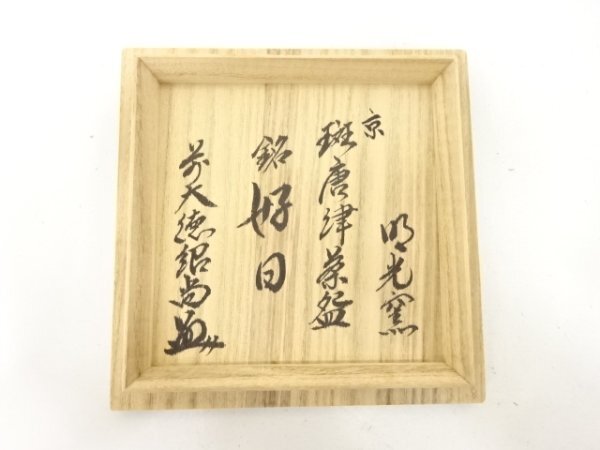 京
明光窯
斑唐津茶盌
銘 好日
前大徳紹尚